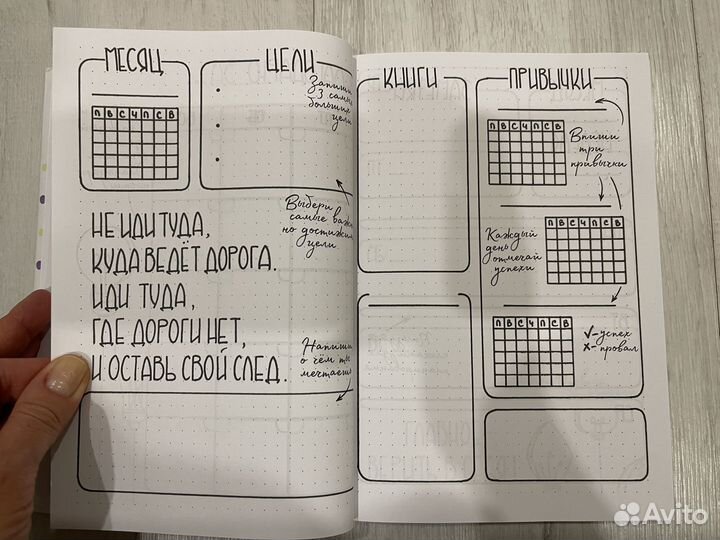 МЕСЯЦ
П В С Ч П С В
ЦЕЛИ
Запиши
3 самых
больших
цели
Выбери
самые важ
но достижим
цели
НЕ ИДИ ТУДА,
КУДА ВЕДЁТ ДОРОГА.
ИДИ ТУДА,
ГДЕ ДОРОГИ НЕТ,
И ОСТАВЬ СВОЙ СЛЕД.
Напиши
о чём ты
мечтаешь
КНИГИ
ПРИВЫЧКИ
П В С Ч П С В
Впиши
три
привычки
Каждый
день
отмечай
успехи
П В С Ч П С В
П В С Ч П С В
V-успех
X-провал
Avito